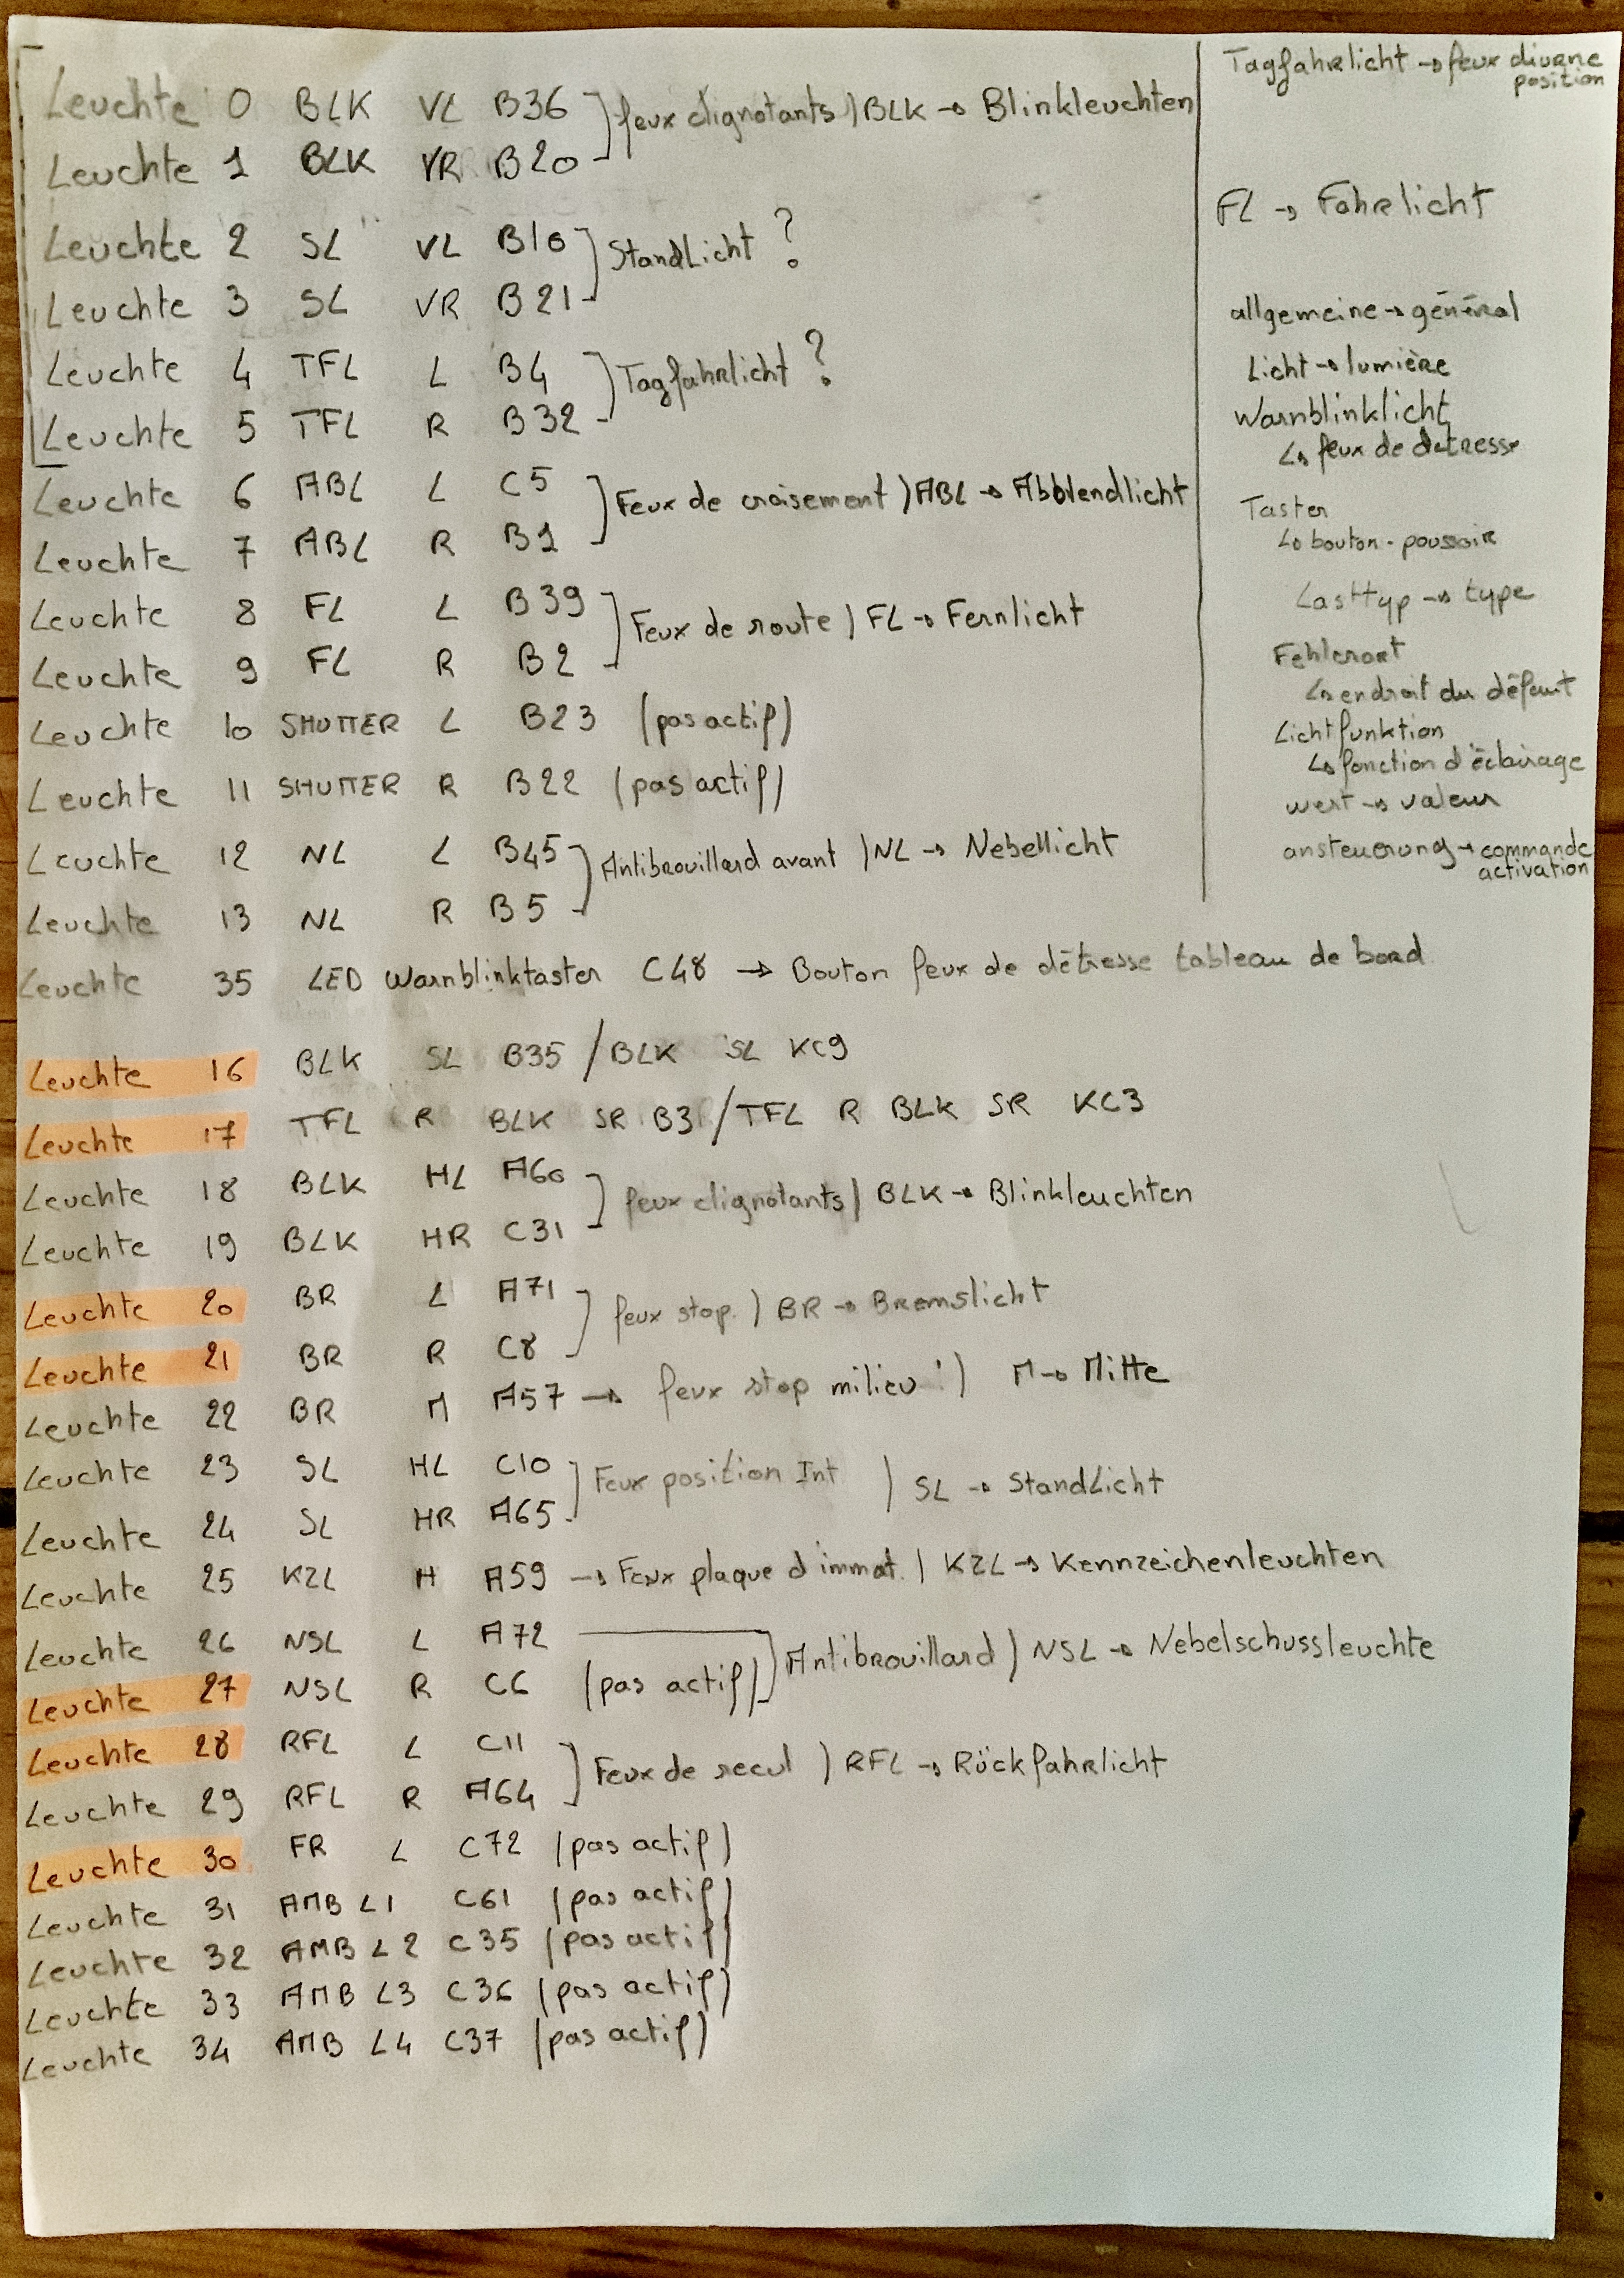 Leuchte 0 BLK VL B36 feux clignotants ) BLK → Blinkleuchten
Leuchte 1 BLK VR B20
Leuchte 2 SL VL B10 StandLicht ?
Leuchte 3 SL VR B21
Leuchte 4 TFL L B4 Tagfahrlicht ?
Leuchte 5 TFL R B32
Leuchte 6 ABL L C5 Feux de croisement ) ABL → Abblendlicht
Leuchte 7 ABL R B1
Leuchte 8 FL L B39 Feux de route ) FL → Fernlicht
Leuchte 9 FL R B2
Leuchte 10 SHUTTER L B23 (pas actif)
Leuchte 11 SHUTTER R B22 (pas actif)
Leuchte 12 NL L B45 Antibrouillard avant ) NL → Nebellicht
Leuchte 13 NL R B5
Leuchte 35 LED Warnblinktaster C48 → Bouton feux de détresse tableau de bord
Leuchte 16 BLK SL B35 / BLK SL KC9
Leuchte 17 TFL R BLK SR B3 / TFL R BLK SR KC3
Leuchte 18 BLK HL A60 feux clignotants ) BLK → Blinkleuchten
Leuchte 19 BLK HR C31
Leuchte 20 BR L A71 feux stop. ) BR → Bremslicht
Leuchte 21 BR R C8
Leuchte 22 BR M A57 → feux stop milieu ) M → Mitte
Leuchte 23 SL HL C10 Feux position Int ) SL → StandLicht
Leuchte 24 SL HR A65
Leuchte 25 KZL H A59 → Feux plaque d'immat. ) KZL → Kennzeichenleuchten
Leuchte 26 NSL L A72 Antibrouillard ) NSL → Nebelschussleuchte
Leuchte 27 NSL R C6 (pas actif)
Leuchte 28 RFL L C11 Feux de recul ) RFL → Rückfahrlicht
Leuchte 29 RFL R A64
Leuchte 30 FR L C72 (pas actif)
Leuchte 31 AMB L1 C61 (pas actif)
Leuchte 32 AMB L2 C35 (pas actif)
Leuchte 33 AMB L3 C36 (pas actif)
Leuchte 34 AMB L4 C37 (pas actif)
Tagfahrlicht → feux diurne
position
FL → Fahrlicht
allgemeine → général
Licht → lumière
Warnblinklicht
↳ feux de détresse
Taster
↳ bouton-poussoir
Lasttyp → type
Fehlerort
↳ endroit du défaut
Lichtfunktion
↳ fonction d'éclairage
wert → valeur
ansteuerung → commande
activation